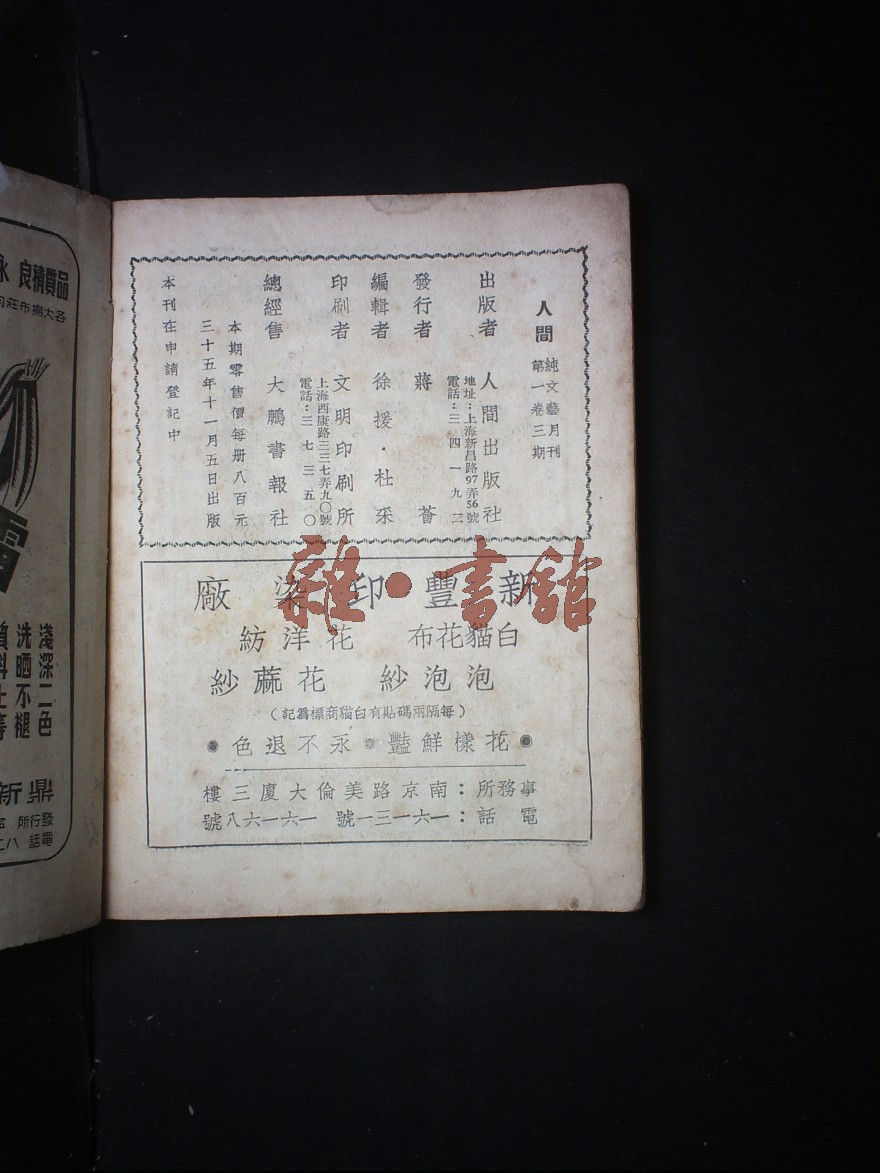 人間
純文藝月刊
第一卷三期
出版者 人間出版社
地址：上海新昌路97弄56號
電話：三四一九二
發行者 蔣薈
編輯者 徐援·杜采
印刷者 文明印刷所
上海西康路三三七弄九〇號
電話：三七三五〇
總經售 大鵬書報社
本期零售價每册八百元
三十五年十一月五日出版
本刊在申請登記中
新豐印染廠
白貓花布 花洋紡
泡泡紗 花蔴紗
（每隔兩碼貼有白貓商標爲記）
花樣鮮豔 永不退色
事務所：南京路美倫大廈三樓
電話：一六一三一號 一六一六八號
雜·書館
品質精良 永
各大綢布莊
淺深二色
洗晒不褪
質料上等
鼎新
發行所
電話 八二